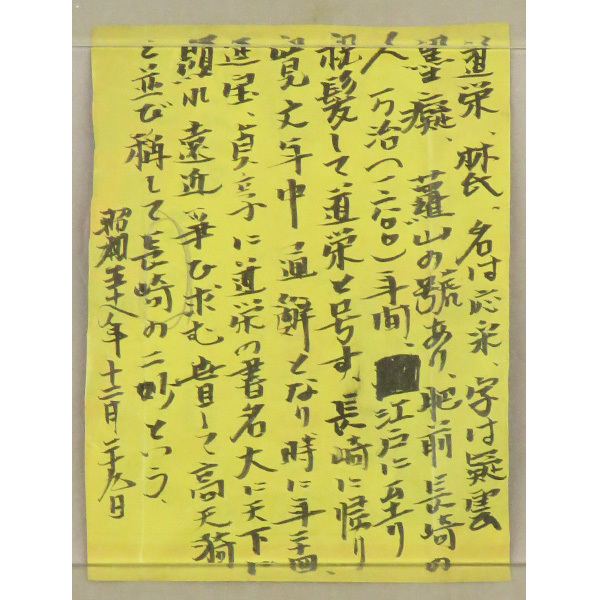 道栄、林氏、名は応寀、字は疑雲
墨癡、蘿山の號あり、肥前長崎の
人 万治(一六〇〇)年間、江戸に至り
祝髪して道栄と号す、長崎に帰り
寛文年中 通解となり、時に年二十四
延宝、貞享に道栄の書名大に天下に
顕れ 遠近争ひ求む 曾して高天漪
と並び稱して長崎の二妙という、
昭和五十八年 十二月二十九日